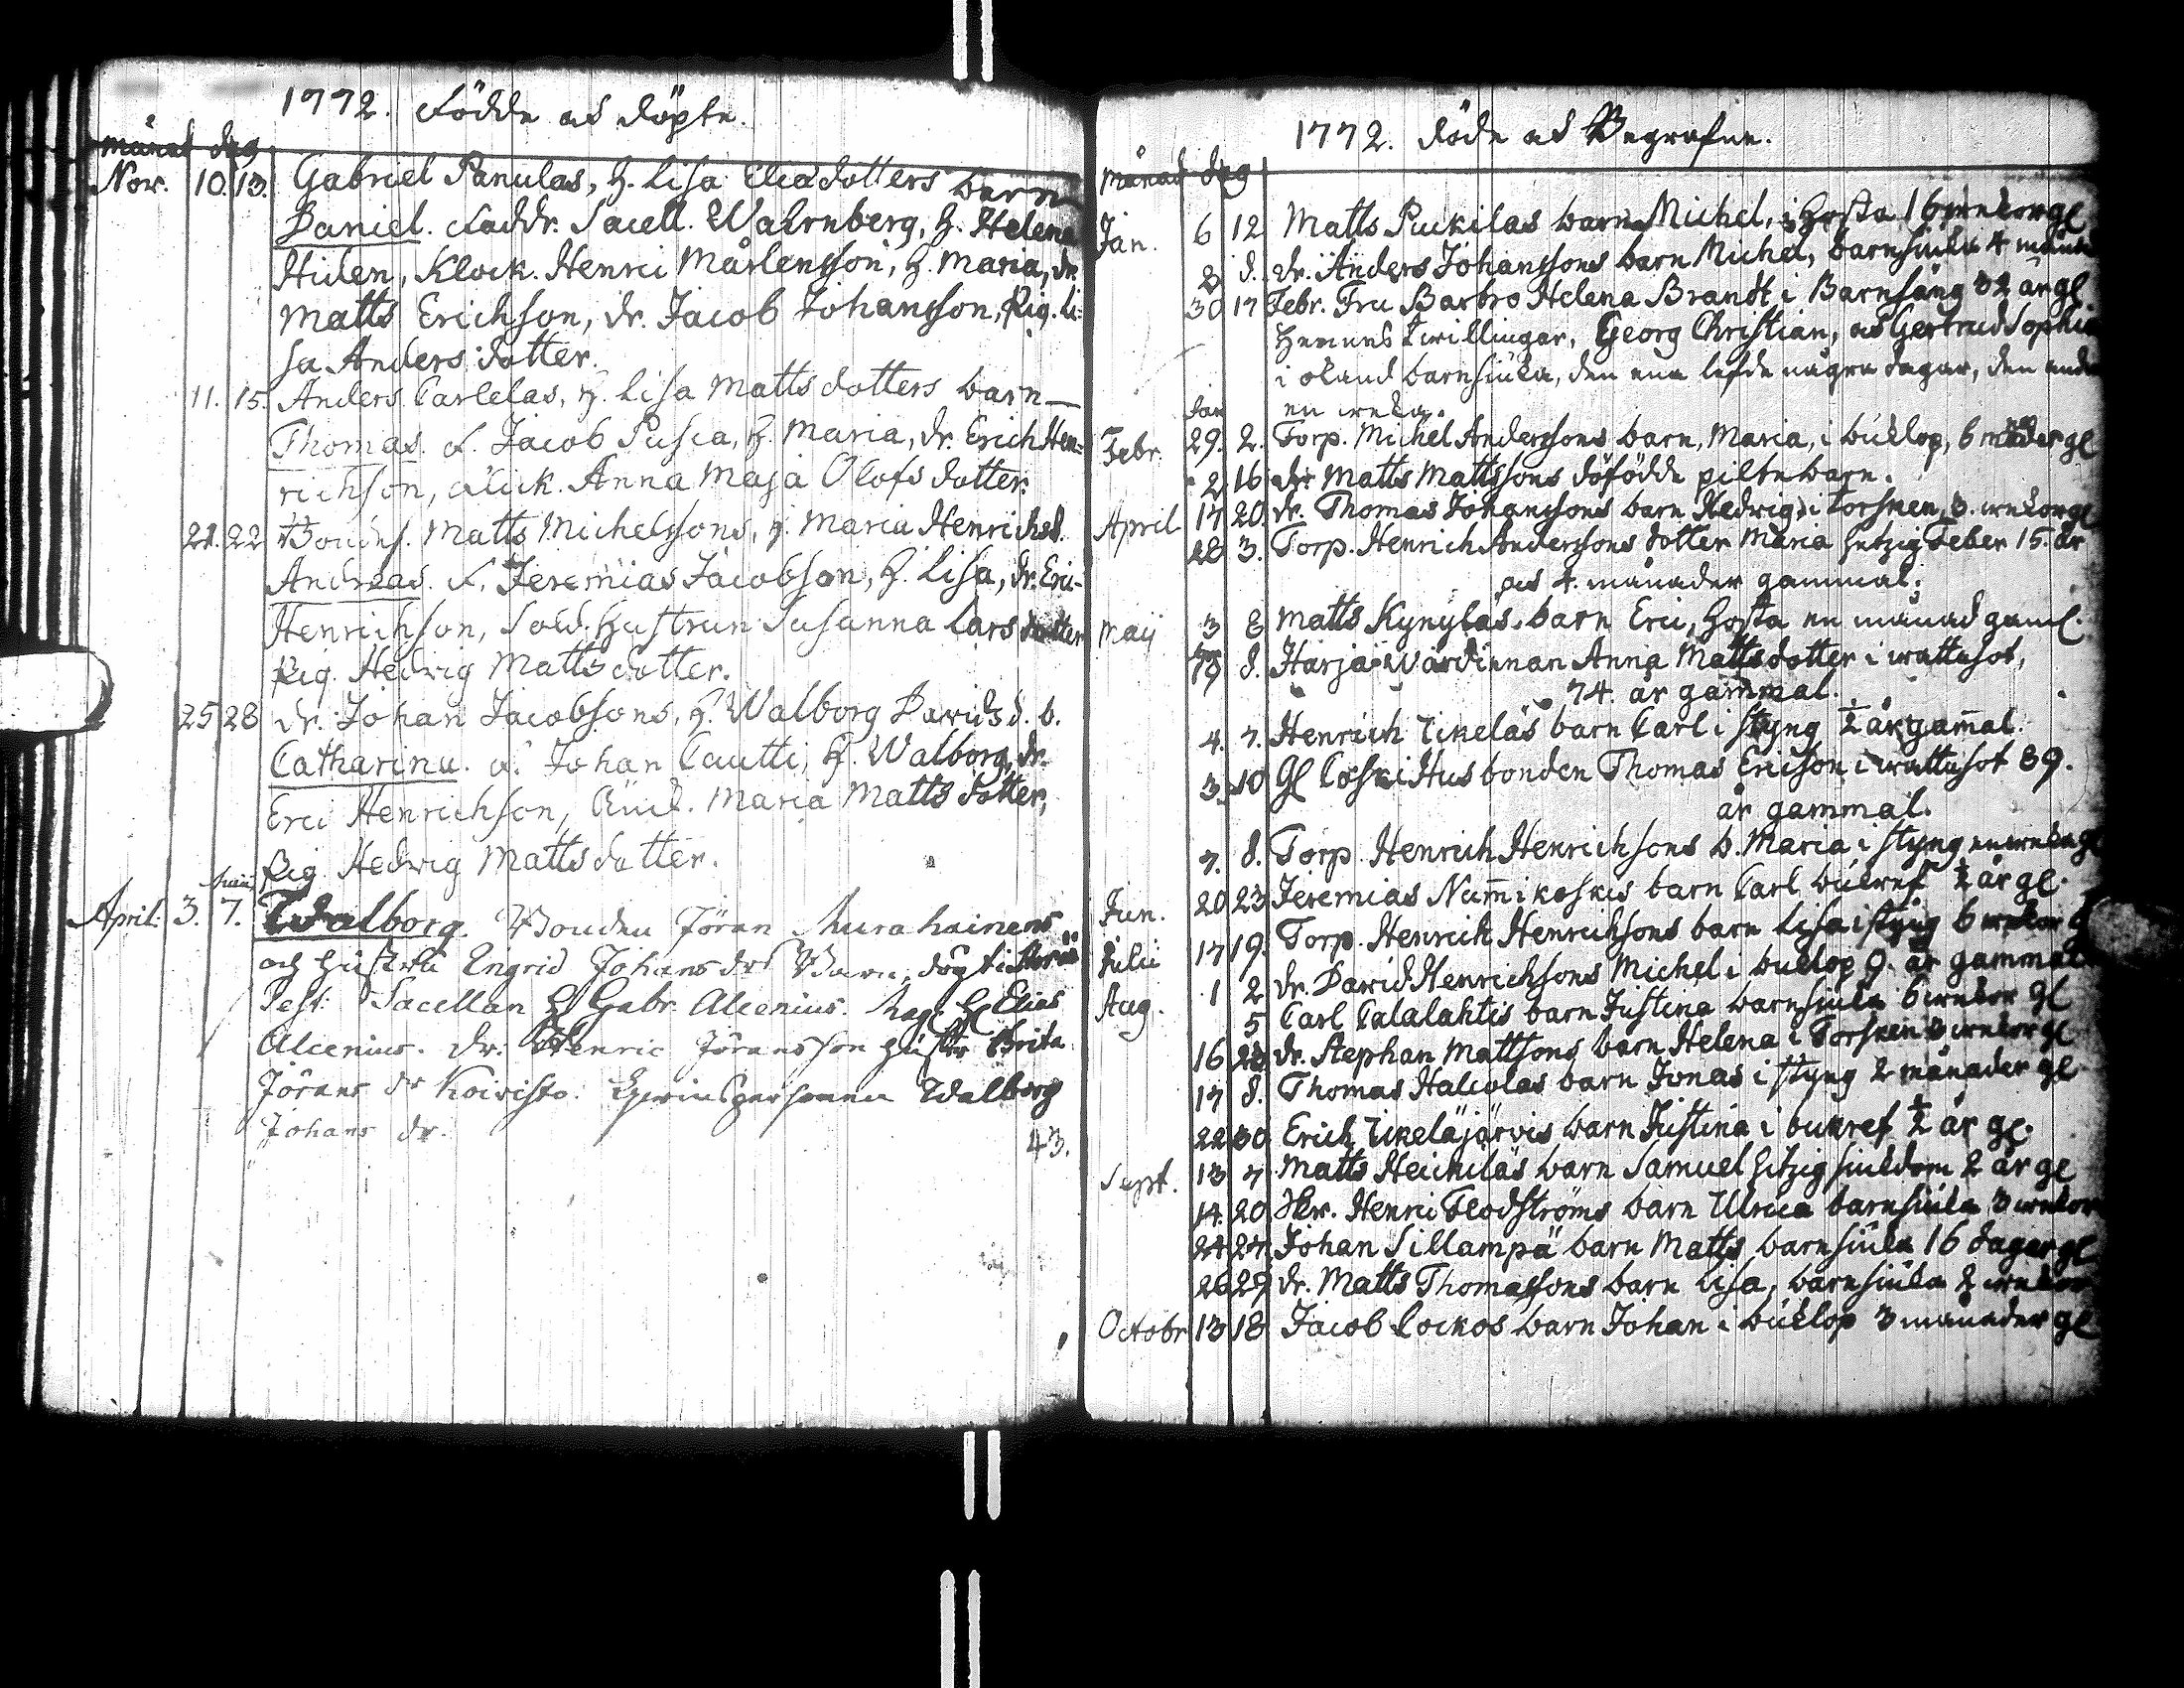 1772. Födde ad döpte.
månad dag
Nov. 10. 13. Gabriel Panulas, H. Lisa Eliædotters barn
Daniel. Faddr. Sacell. Wahrnberg, H. Helena
Hiden, Klock. Henric Mårtensson, H. Maria, dr.
Matts Erichson, dr. Jacob Johansson, Pig. Li-
sa Anders dotter.
11. 15. Anders Carlelas, H. Lisa Mattsdotters barn
Thomas. F. Jacob Pusca, H. Maria, dr. Erich Hen-
richson, Anna Maja Olofsdotter.
21. 22 Bondes. Matts Michelssons, H. Maria Henrichsd.
Andreas. F. Jeremias Jacobson, H. Lisa, dr. Eric
Henrichson, Sold. Hustrun Susanna Larsdotter
Pig. Hedwig Mattsdotter.
25 28 dr. Johan Jacobsons, H. Walborg Davidsd. b.
Catharina. F. Johan Cautti, H. Walborg, dr.
Eric Henrichson, Maria Mattsdotter,
Pig. Hedwig Mattsdotter.
April. 3. 7. Walborg. Bonden Jöran Murahainens
och Hustru Engrid Johans dr Barn, döpt
Test: Sacellan H Gabr. Alcenius. Mag. H Elias
Alcenius. dr. Henric Jöransson Hustr Brita
Jörans dr Koivisto. Qwinspersonen Walborg
Johans dr.
43.
1772. döde ad Begrafne.
månad dag
Jan. 6 12 Matts Puckilas barn Michel, i Hosta 16 wekor gl
8 d. dr. Anders Johanssons barn Michel, barnsiuka 4 månad
30 17 Febr. Fru Barbro Helena Brandt i Barnsäng 32 år gl.
Hennes twillingar, Georg Christian, ad Gertrud Sophia
i okänd barnsiuka, den ena lefde några dagar, den andra
en weka.
Jan
Febr. 29. 2. Torp. Michel Anderssons barn, Maria, i buklop, 6 månader gl
2 16 dr Matts Mattssons döfödde piltebarn.
April 17 20. dr. Thomas Johanssons barn Hedwig i Torsken, 3. wekor gl
28 3. Torp. Henrich Anderssons dotter Maria hetzig Feber 15. år
ad 4. månader gammal.
Maij 3 8 Matts Kynyläs barn Eric, Hosta en månad gaml.
19 d. Harja Wärdinnan Anna Mattsdotter i wattusot,
74. år gammal.
4. 7. Henrich Tikeläs barn Carl i styng ½ år gamal.
3. 10 Gl Coski Husbonden Thomas Ericson i wattusot 89.
år gammal.
7. d. Torp. Henrich Henrichsons b. Maria i styng en weka gl
Jun. 20 23 Jeremias Nummikoskis barn Carl bukref ½ år gl.
Julii 17 19. Torp. Henrich Henrichsons barn Lisa i styng 6 wekor
Aug. 1 2 dr. David Henrichsons Michel i buklop 9. år gammal
5 Carl Calalahtis barn Justina barnsiuka 6 wekor gl
16 23 dr. Stephan Mattsons barn Helena i Torsken 3 wekor gl
17 d. Thomas Halcolas barn Jonas i styng 2 månader gl
22 30 Erich Tikeläjärvis barn Justina i bukref ½ år gl.
Sept. 13 7 Matts Heickiläs barn Samuel hitzig siukdom 2 år gl
14. 20 Hr. Henric Flodströms barn Ulrica barnsiuka 3 wekor
24 27 Johan Sillampä barn Matts barnsiuka 16 dagar gl
26 29 dr. Matts Thomassons barn Lisa, barnsiuka 2 wekor
Octobr 13 18 Jacob Cockos barn Johan i buklop 3 månader gl